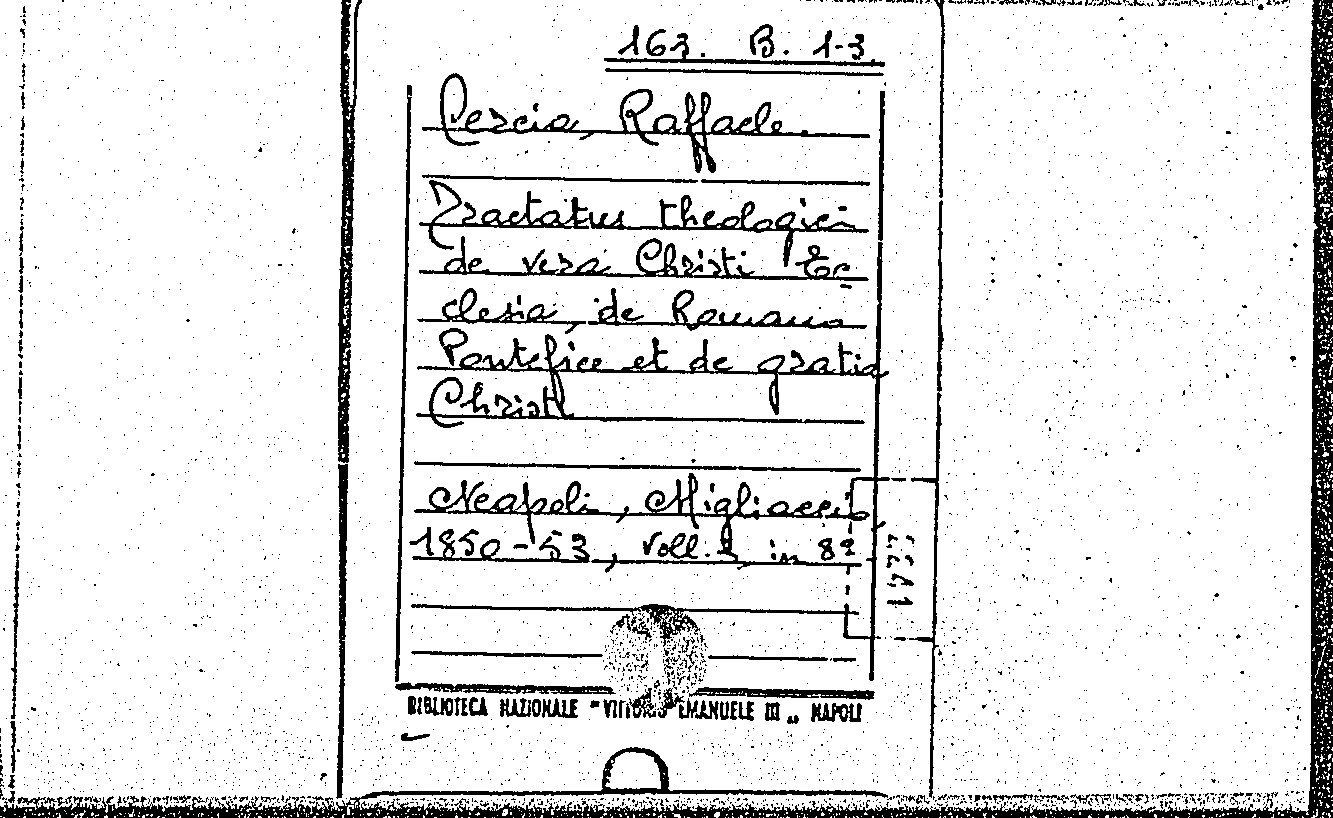 163. B. 1-3.
Cercia, Raffaele.
Tractatus theologici
de vera Christi Ec
clesia, de Romano
Pontefice et de gratia
Christi
Neapoli, Migliaccio,
1850-53, voll. in 8º
BIBLIOTECA NAZIONALE "VITTORIO EMANUELE III„ NAPOLI